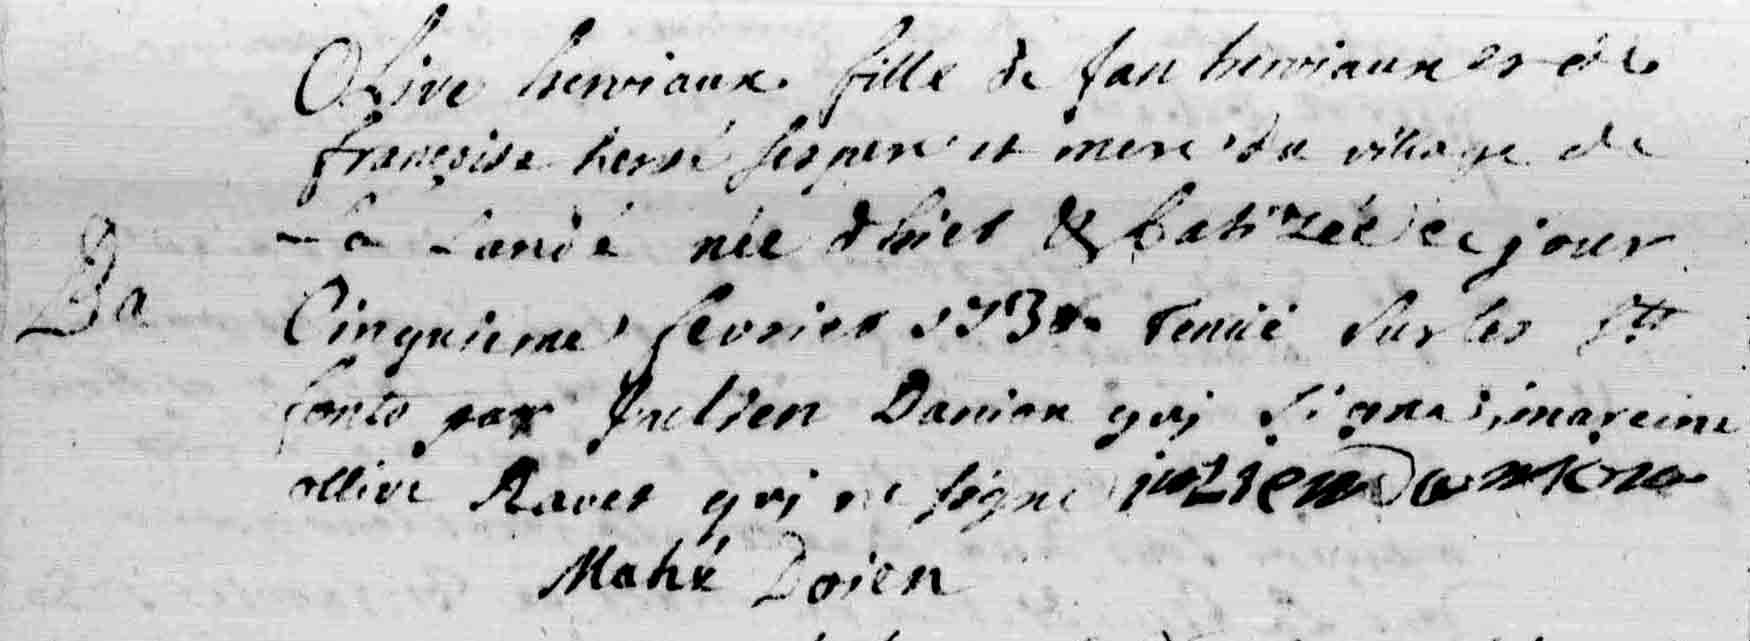 Olive herviaux fille de Jan herviaux et de
françoise hervé ses pere et mere du village de
La Lande née d hier & batizée ce jour
Ba
Cinquieme fevrier 173 tenüe sur les Sts
fonts par Julien Danion qui signe, mareine
ollive Raver qui ne signe julien Danion
Mahé Doien